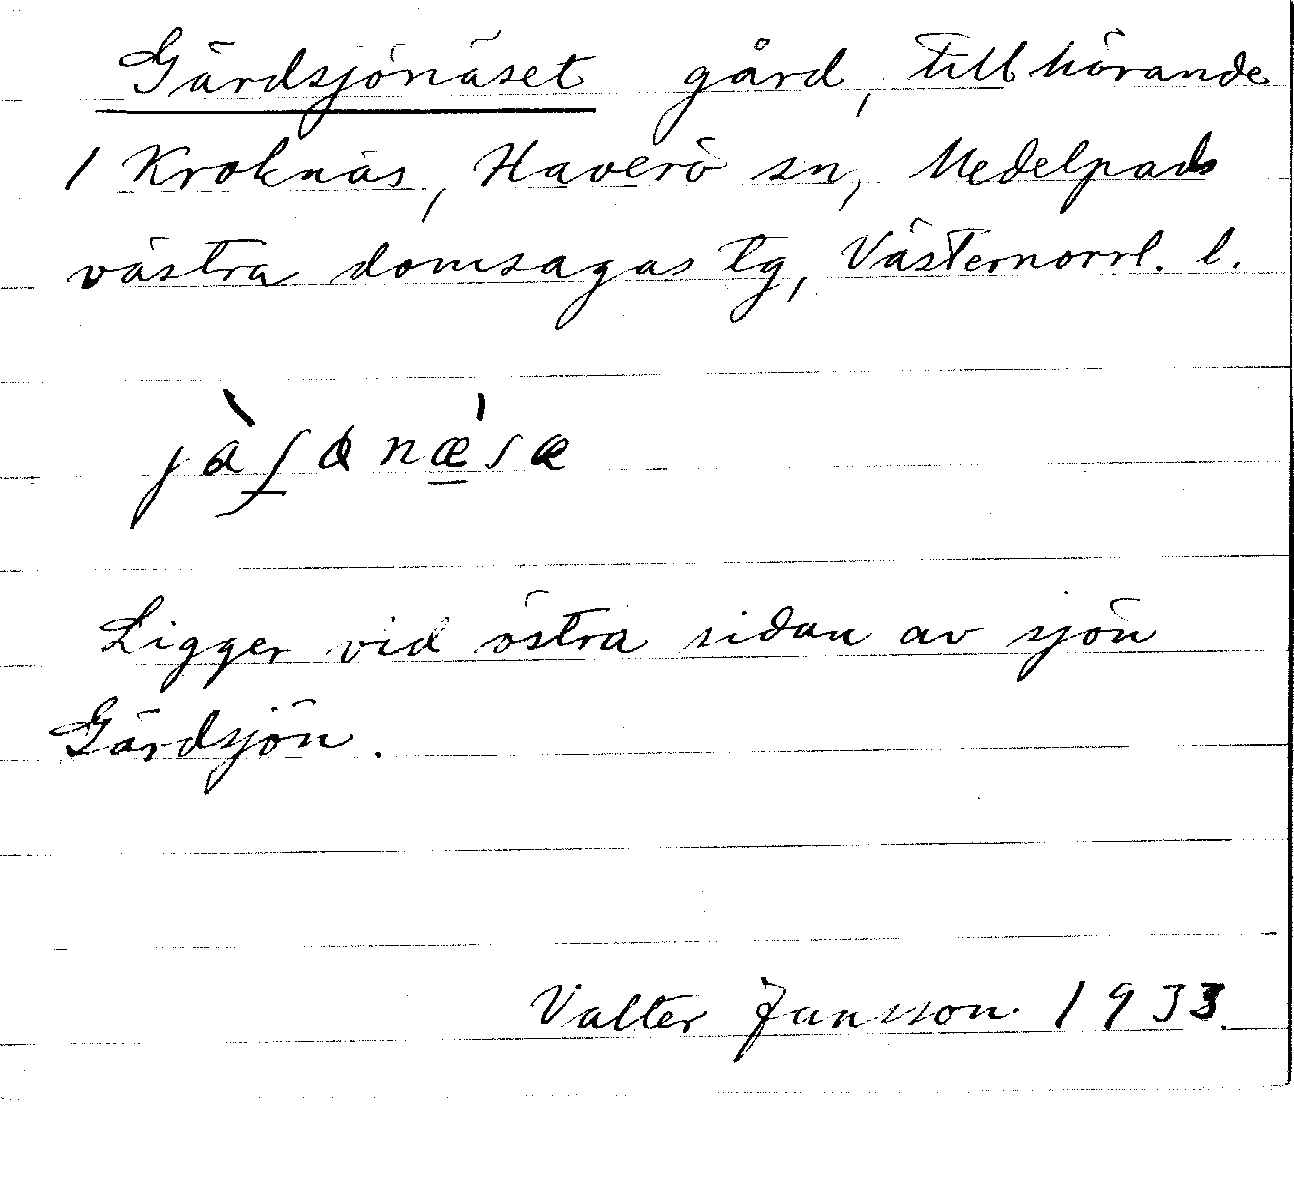 Gärdsjönäset gård, tillhörande
1 Kroknäs, Haverö sn, Medelpads
västra domsagas tg, Västernorrl. l.
jàʃɑnæ̱'sæ
Ligger vid östra sidan av sjön
Gärdsjön.
Valter Jansson 1933